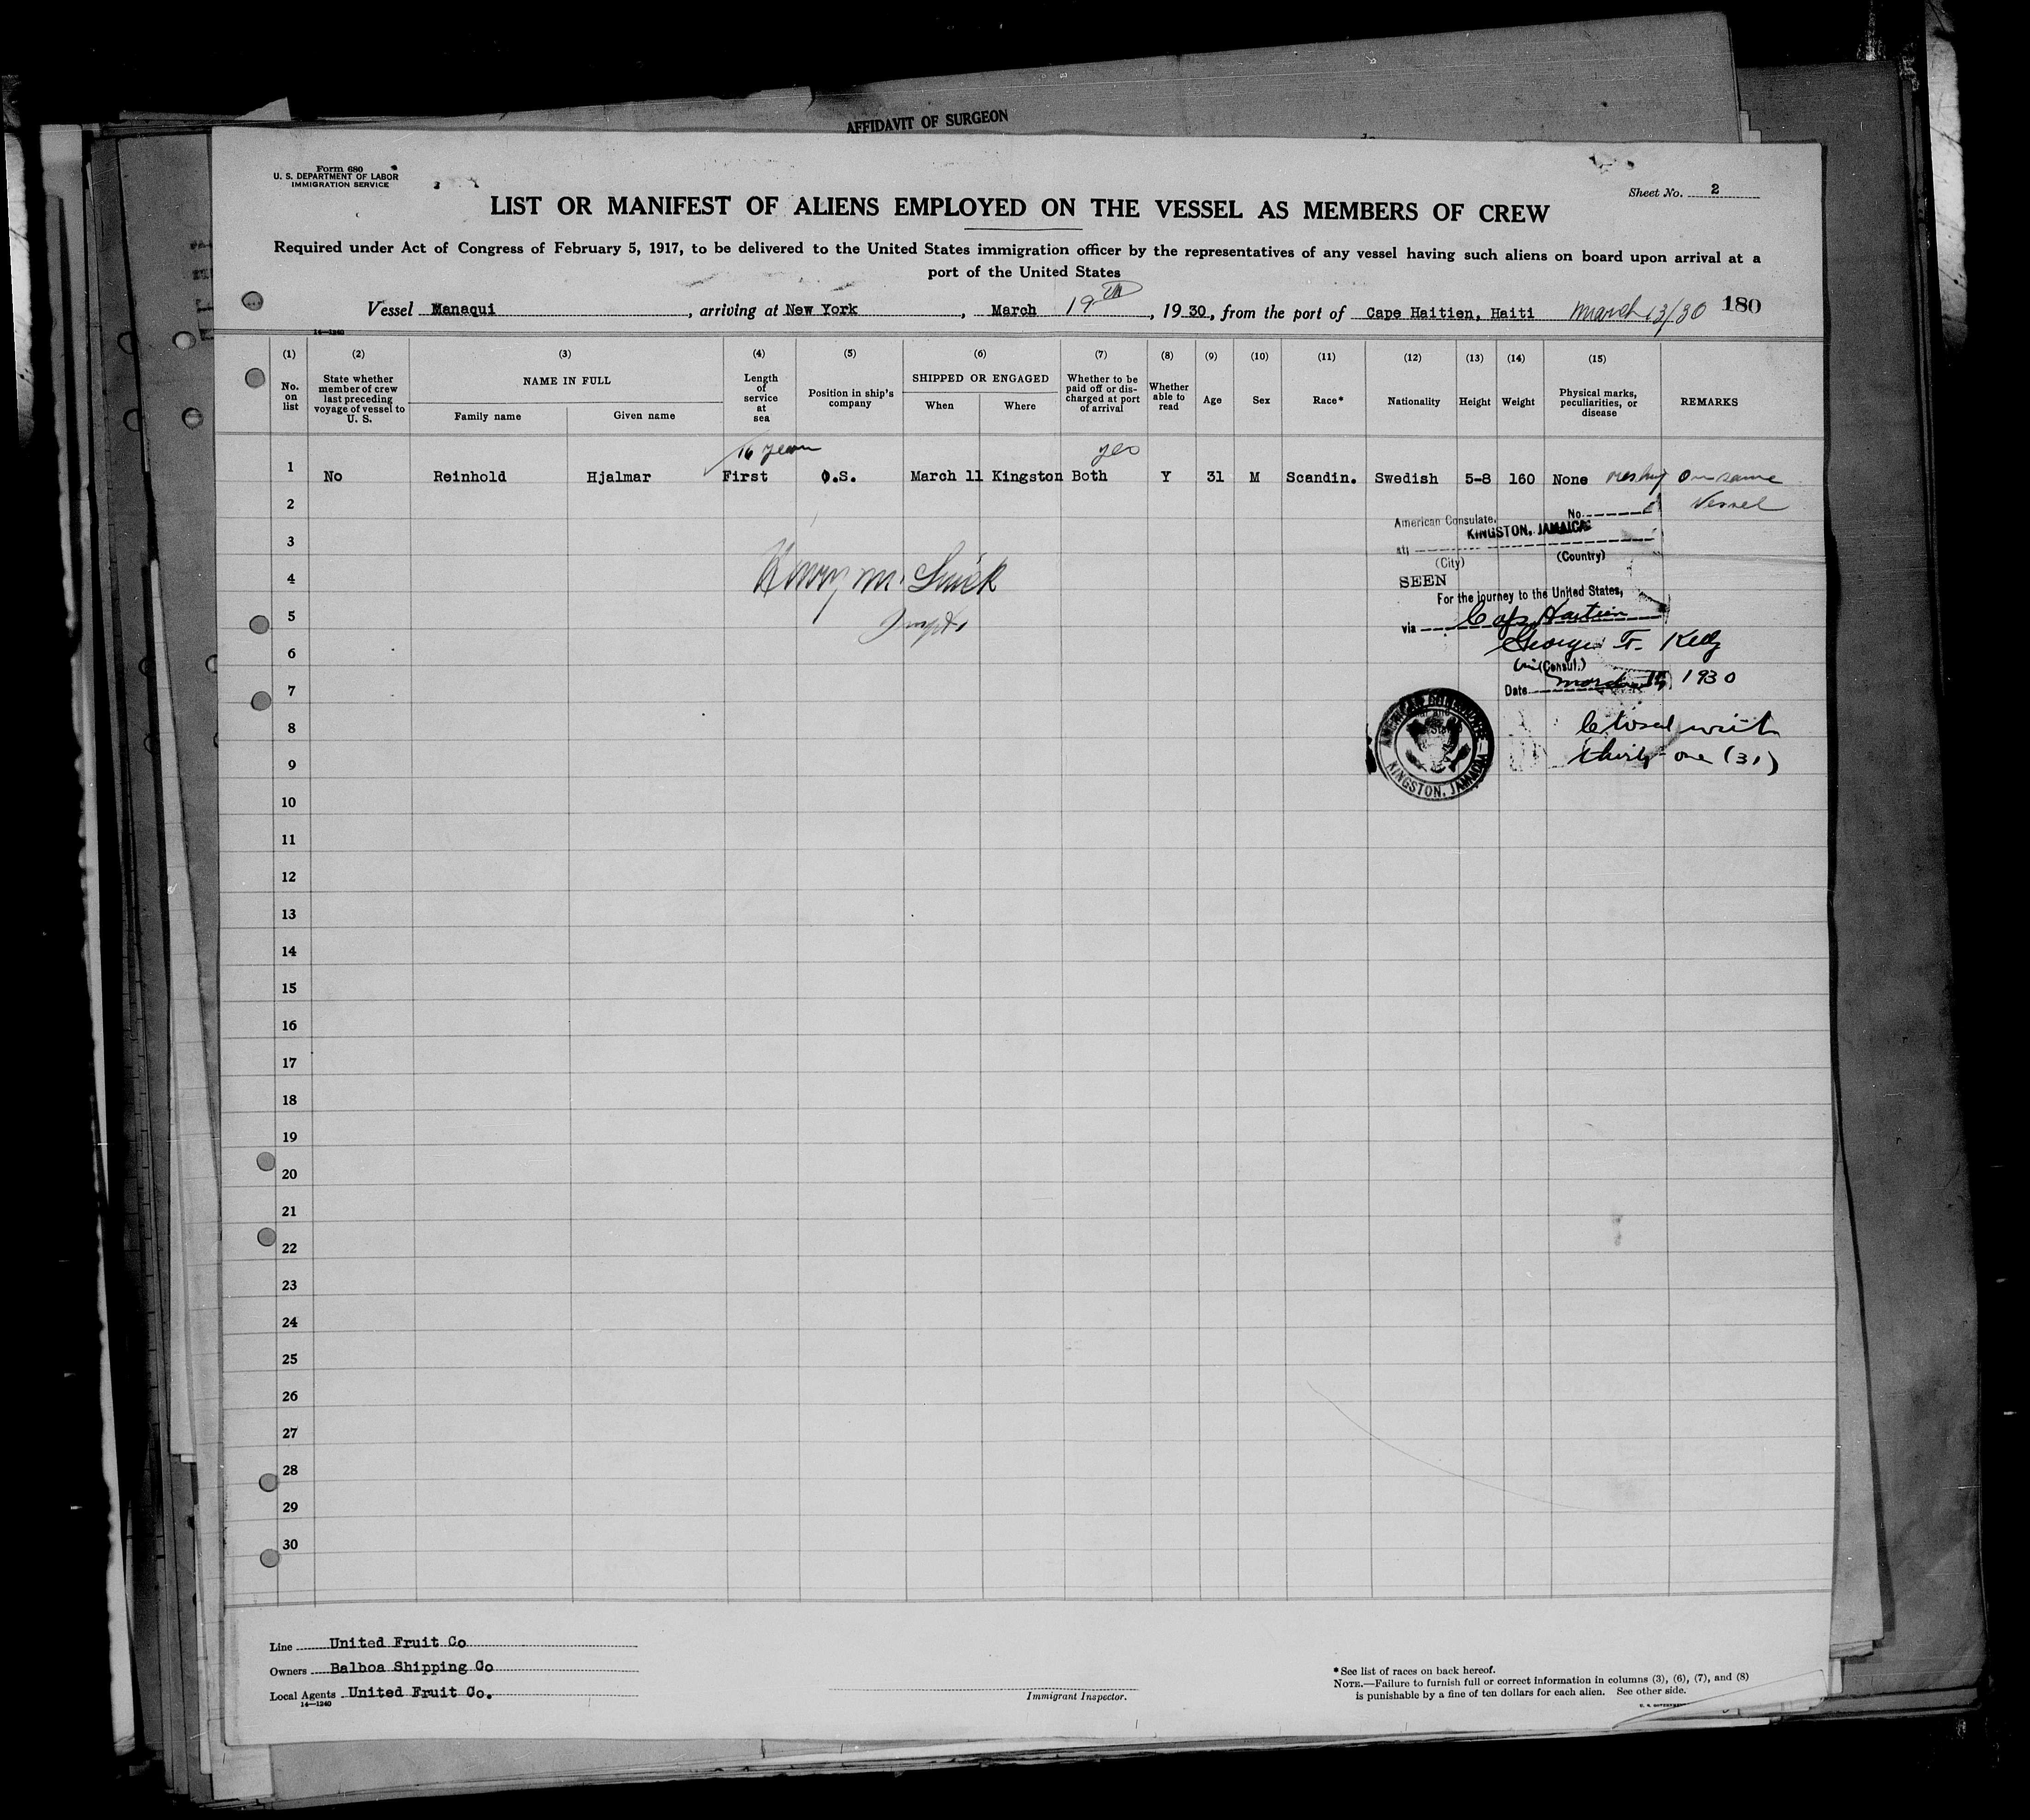 AFFIDAVIT OF SURGEON
Form 680
U. S. DEPARTMENT OF LABOR
IMMIGRATION SERVICE
Sheet No. 2
LIST OR MANIFEST OF ALIENS EMPLOYED ON THE VESSEL AS MEMBERS OF CREW
Required under Act of Congress of February 5, 1917, to be delivered to the United States immigration officer by the representatives of any vessel having such aliens on board upon arrival at a
port of the United States
Vessel Managui, arriving at New York, March 19th, 1930, from the port of Cape Haitien, Haiti March 13/30 180
14-1240
(1) (2) (3) (4) (5) (6) (7) (8) (9) (10) (11) (12) (13) (14) (15)
No. on list
State whether member of crew last preceding voyage of vessel to U. S.
NAME IN FULL
Family name
Given name
Length of service at sea
Position in ship's company
SHIPPED OR ENGAGED
When
Where
Whether to be paid off or discharged at port of arrival
Whether able to read
Age
Sex
Race*
Nationality
Height
Weight
Physical marks, peculiarities, or disease
REMARKS
16 years yes
1 No Reinhold Hjalmar First O.S. March 11 Kingston Both Y 31 M Scandin. Swedish 5-8 160 None On same
2 Vessel
American Consulate, No.
3 at KINGSTON, JAMAICA
(City) (Country)
4 SEEN
For the journey to the United States,
5 via Cape Haitien
6 George F. Kelly
(Consul.)
7 Date March 1930
8 Closed with
9 thirty-one (31)
AMERICAN CONSULATE KINGSTON, JAMAICA
10
11
12
13
14
15
16
17
18
19
20
21
22
23
24
25
26
27
28
29
30
Line United Fruit Co
Owners Balboa Shipping Co
Local Agents United Fruit Co.
14-1240
Immigrant Inspector.
*See list of races on back hereof.
NOTE.—Failure to furnish full or correct information in columns (3), (6), (7), and (8)
is punishable by a fine of ten dollars for each alien. See other side.